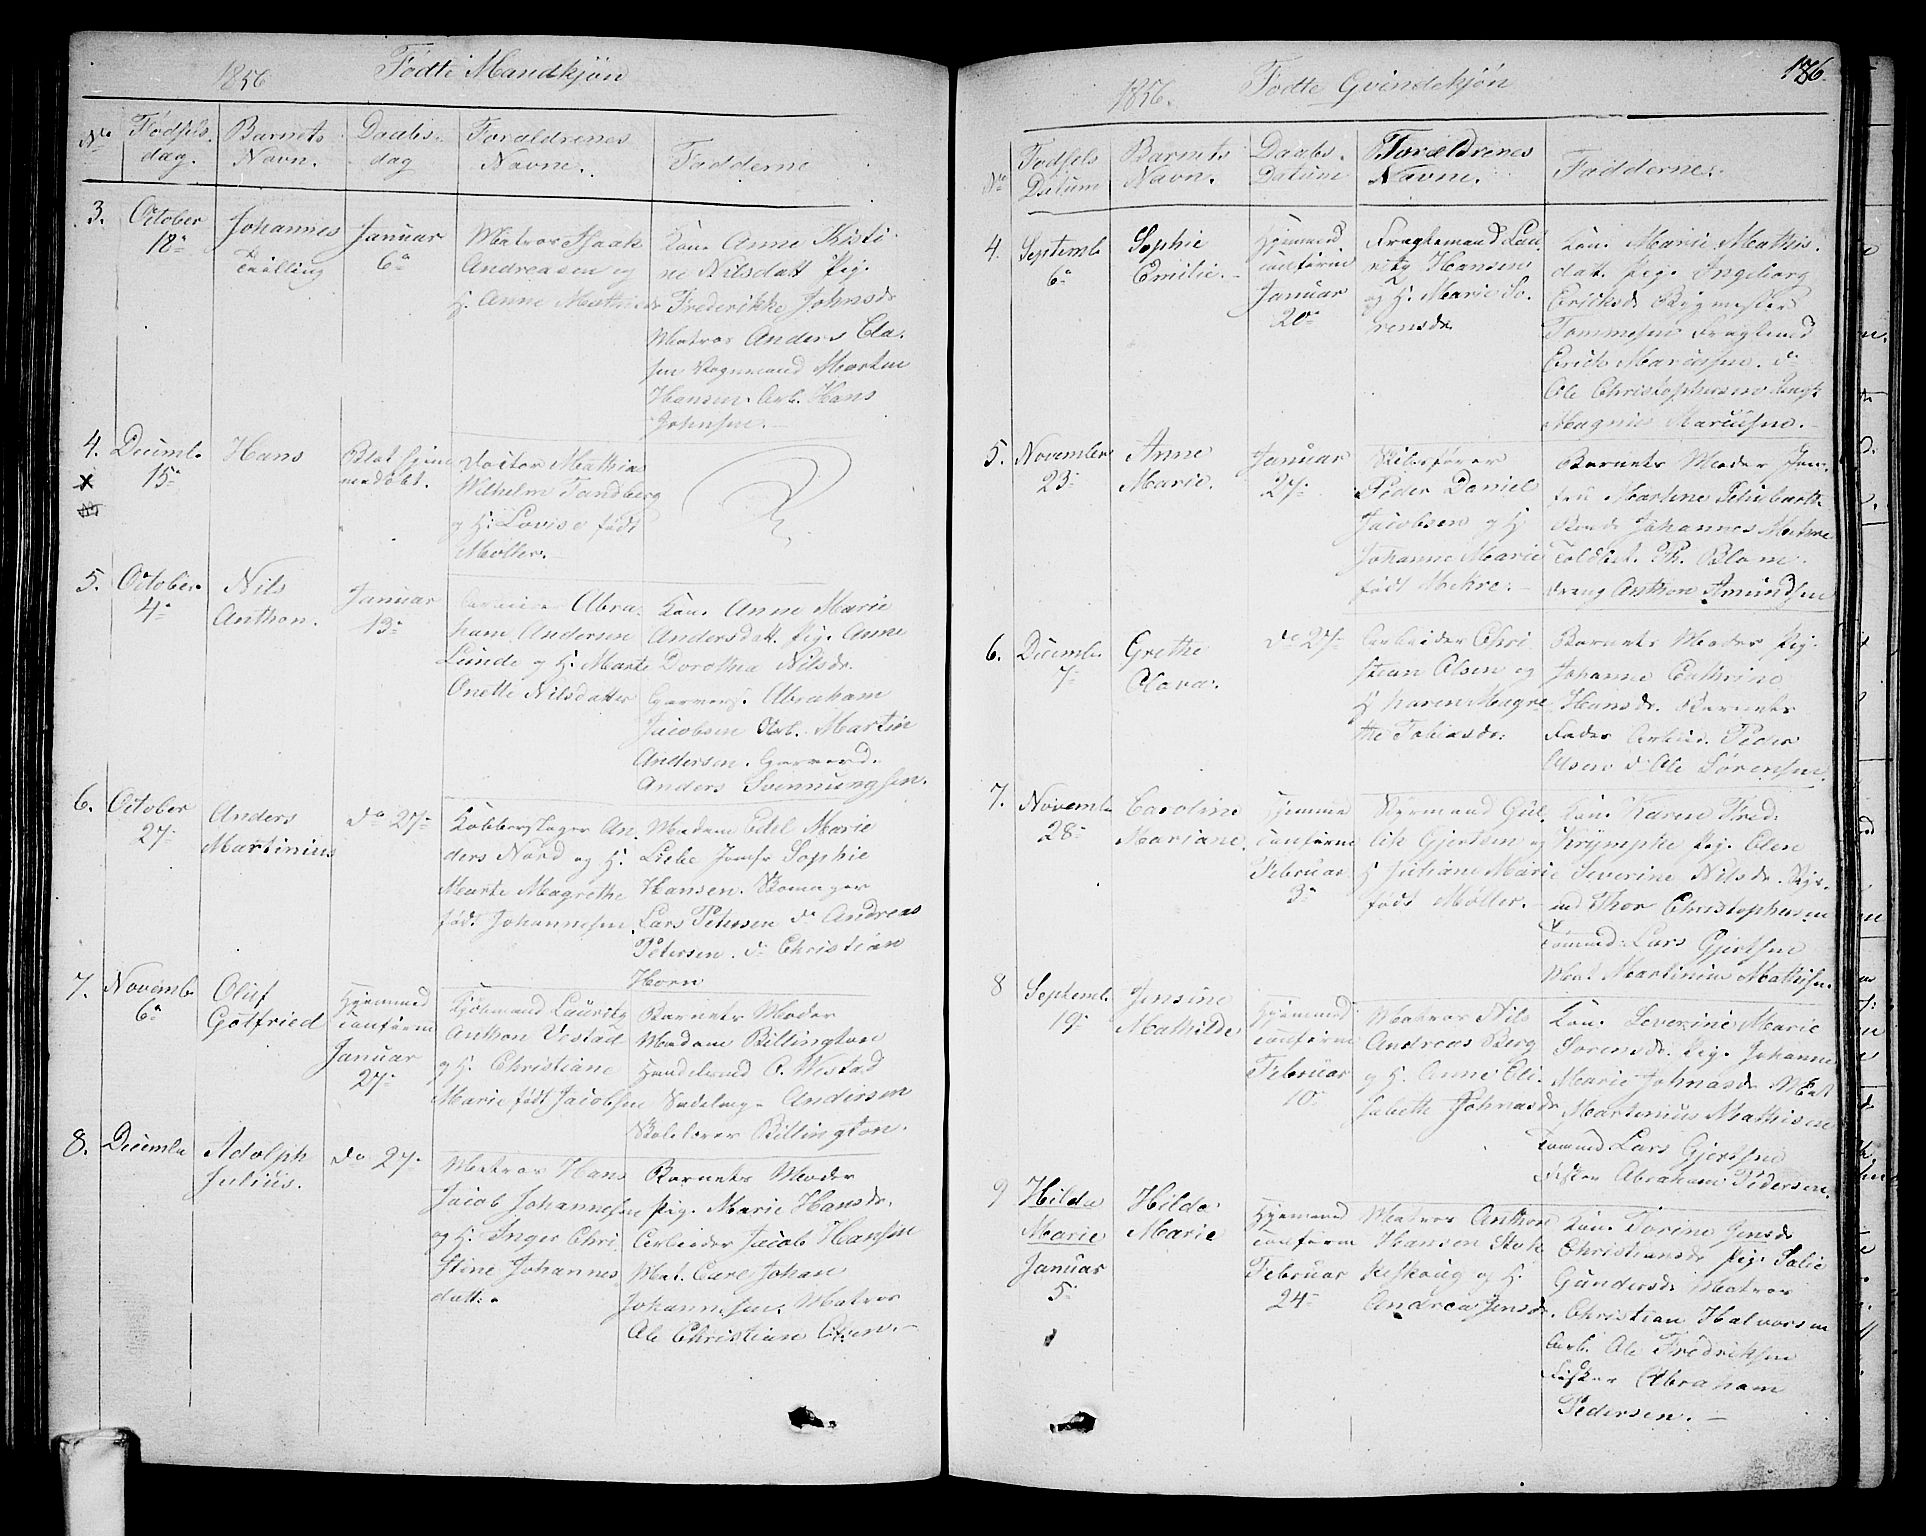 1856 Fødte Mandkjøn
No Fødsels dag. Barnets Navn. Daabs- dag Forældrenes Navne. Fadderne
3. October 18de Johannes Tvilling Januar 6te
Matros Isaak
Andreasen og
H. Anne Mathisdr
Kon. Anne Kisti
ne Nilsdatt Pig.
Frederikke Johnsdr
Matros Anders Cla-
sen Styrmand Morten
Hansen. Arb. Hans
Johnsen.
4. Decemb. 15de Hans Blot hjem
medøbt.
Doctor Mathias
Wilhelm Tandberg
og H. Lovise født
Møller.
5. October 4de Nils Anthon. Januar 13de
Abra
ham Andersen
Lunde og H. Marte
Onette Nilsdatter
Kon. Anne Marie
Andersdatt. Pig. Anne
Dorothea Nilsdr.
Garvers. Abraham
Jacobsen Arb. Martin
Andersen. Garversd.
Anders Svinnungsen.
6. October 27de Anders Martinius do 27de
Kobberslager An
ders Nord og H.
Marte Magrethe
født Johannesen
Madam Edel Marie
Liebe Jomfr Sophie
Hansen.
Lars Petersen do Andreas
Petersen. do Christian
Horn
7. Novemb. 6te Oluf Gotfried Hjemmed
Conferm
Januar
27de
Kjøbmand Lauritz
Anthon Vestad
og H. Christiane
Marie født Jacobsen
Barnets Moder
Madam Billington
Handelsmd C. Westad
Andersen
Skolelærer Billington.
8. Decembr Adolph Julius. do 27de
Matros Hans
Jacob Johannesen
og H. Inger Chri
stine Johannes
datt.
Barnets Moder
Pig. Marie Hansdr.
Arbeider Jacob Hansen
Mat. Carl Johan
Johannesen. Matros
Ole Christian Olsen.
186.
1856. Fødte Qvindekjøn
No Fødsels Datum Barnets Navn. Daabs- Datum Forældrenes Navne. Fadderne.
4. Septemb. 6te Sophie Emilie. Hjemmed.
Conferm
Januar
20de
Fragtemand Lau
ritz Hansen
og H. Marie So-
rensdr.
Kon. Marie Mathis
datt. Pig. Ingeborg
Ericksdr Bygmester
Tommesen Fragtemd
Erich Mariusen. do
Ole Christophersen
Magnus Mariusen.
5. November 23de Anne Marie. Januar 27de
Skibsfører
Peder Daniel
Jacobsen og H.
Johanne Marie
født Mekre.
Barnets Moder Jom-
fru Martine Schubarth
Johannes
Toldbet. Th. Blom.
Dreng Anthon Amundsen
6. Decemb. 7de Grethe Clara. do 27de
Arbeider Chri
stian Olsen og
H Karen Magre
the Tobiasdr.
Barnets Moder Pig.
Johanne Cathrine
Hansdr. Barnets
Fader Arbeid. Peder
Olsen do Ole Sørensen.
7. Novemb. 28de Caroline Mariane. Hjemme
Conferm
Februar
3de
Styrmand Gul
lik Gjertsen og
H Juliane Marie
født Møller.
Kon. Karen Fred.
Krympke Pig. Elen
Severine Nilsdr. Styr-
md Thor Christophersen
Tømmd: Lars Gjertsen
Mat. Martinius Mathisen.
8 Septemb. 19de Jensine Mathilde Hjemmed
Conferm
Februar
10de
Matros Nils
Andreas Berg
og H. Anne Eli-
sabeth Johnasdr
Kon. Severine Marie
Sorensdr. Pig. Johanne
Marie Johnasdr Mat
Martinius Mathisen
Tømmd Lars Gjertsen
Fisker Abraham Pedersen.
9 Hilda Marie Januar 5te Hilda Marie Hjemmed
Conferm
Februar
24de
Matros Anthon
Hansen Stok
keskoug og H.
Andrea Jensdr
Kon. Torine Jensdr
Christiansdr Pig. Salie
Gundersdr Matros
Christian Halvorsen
Arb. Ole Fredriksen
Fisker Abraham
Pedersen.